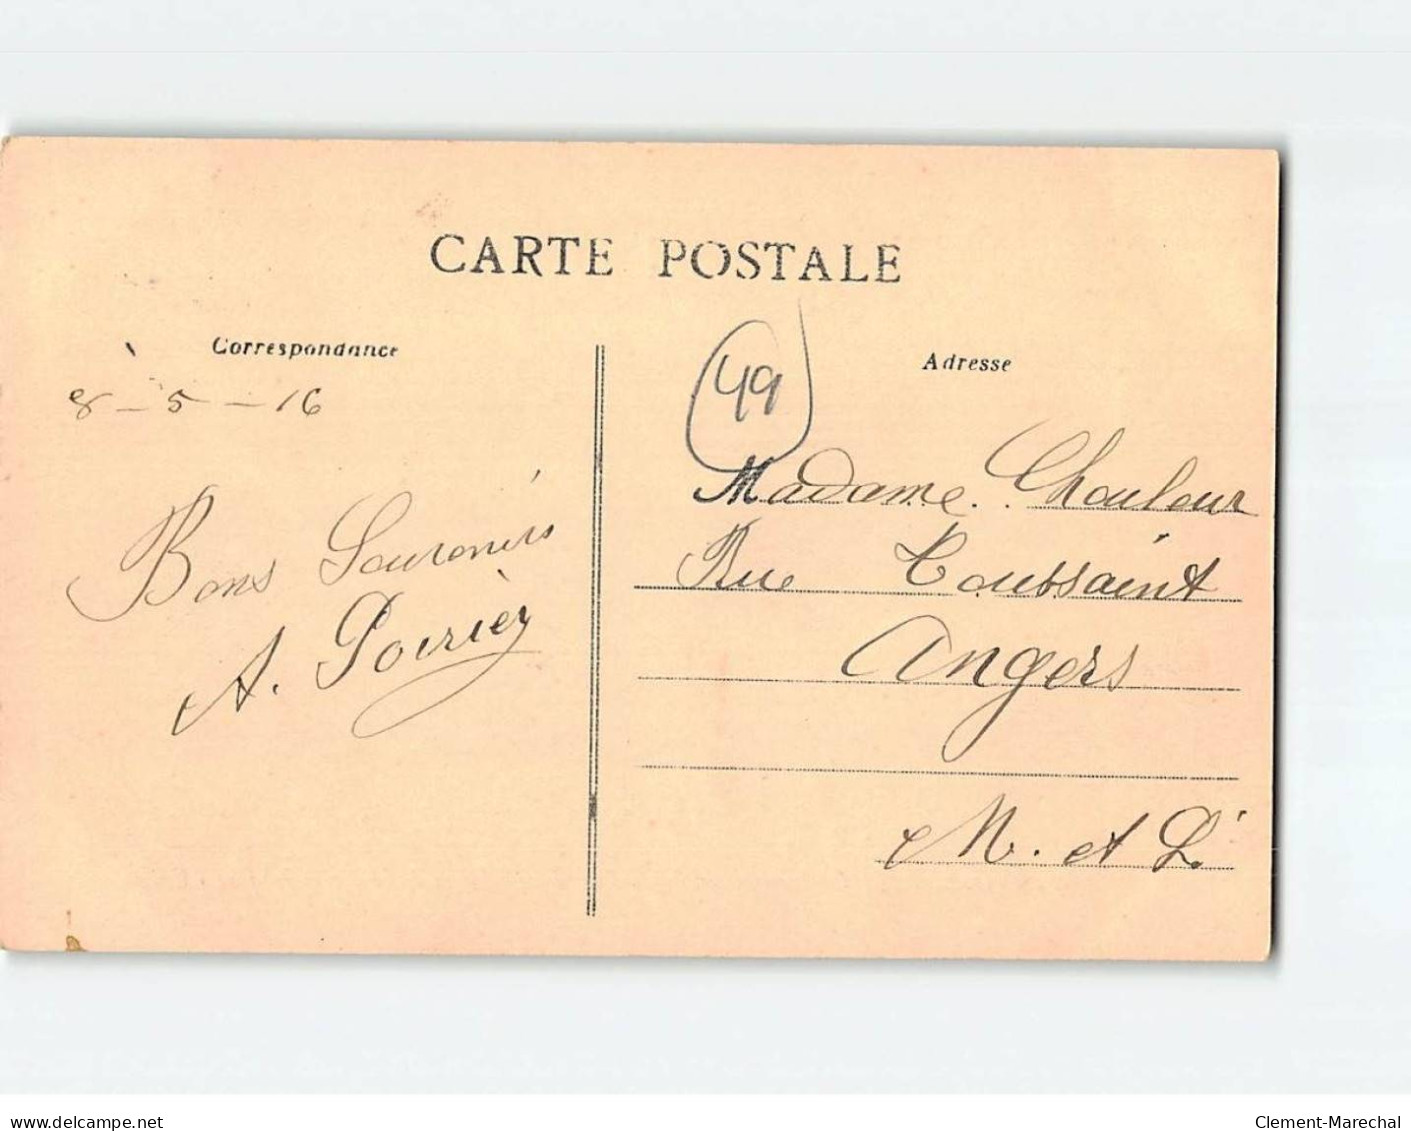 CARTE POSTALE
Correspondance
8 - 5 - 16
Bons Souvenirs
A. Poirier
Adresse
49
Madame Chouleur
Rue Toussaint
Angers
M. et L.
www.delcampe.net
Clement-Marechal